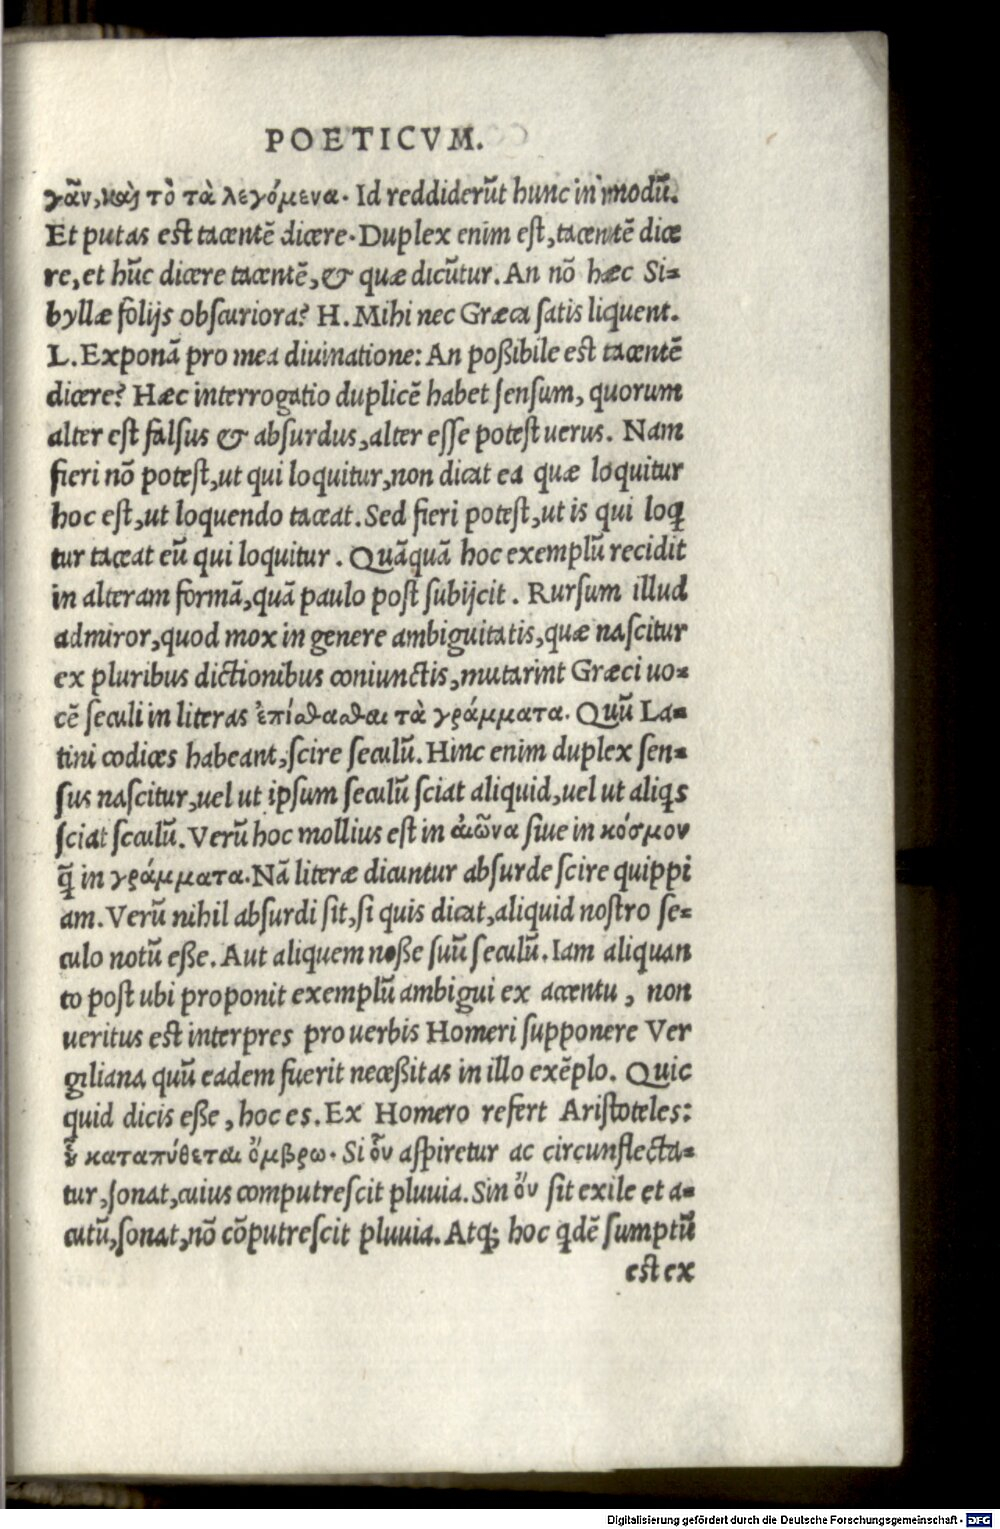 POETICVM.
γᾶν, καὶ τὸ τὰ λεγόμενα. Id reddiderūt hunc in modū.
Et putas est tacentē dicere. Duplex enim est, tacentē dice
re, et hūc dicere tacentē, & quæ dicūtur. An nō hæc Si=
byllæ folijs obscuriora? H. Mihi nec Græca satis liquent.
L. Exponā pro mea diuinatione: An poßibile est tacentē
dicere? Hæc interrogatio duplicē habet sensum, quorum
alter est falsus & absurdus, alter esse potest uerus. Nam
fieri nō potest, ut qui loquitur, non dicat ea quæ loquitur
hoc est, ut loquendo taceat. Sed fieri potest, ut is qui loq̃
tur taceat eū qui loquitur. Quāquā hoc exemplū recidit
in alteram formā, quā paulo post subijcit. Rursum illud
admiror, quod mox in genere ambiguitatis, quæ nascitur
ex pluribus dictionibus coniunctis, mutarint Græci uo=
cē seculi in literas ἐπίσασθαι τὰ γράμματα. Quū La=
tini codices habeant, scire seculū. Hinc enim duplex sen=
sus nascitur, uel ut ipsum seculū sciat aliquid, uel ut aliq̃s
sciat seculū. Verū hoc mollius est in αἰῶνα siue in κόσμον
q̃ in γράμματα. Nā literæ dicuntur absurde scire quippi
am. Verū nihil absurdi sit, si quis dicat, aliquid nostro se=
culo notū eße. Aut aliquem noße suū seculū. Iam aliquan
to post ubi proponit exemplū ambigui ex accentu, non
ueritus est interpres pro uerbis Homeri supponere Ver
giliana quū eadem fuerit neceßitas in illo exēplo. Quic
quid dicis eße, hoc es. Ex Homero refert Aristoteles:
οὗ καταπύθεται ὄμβρω. Si οὗ aspiretur ac circunflecta=
tur, sonat, cuius computrescit pluuia. Sin οὔ sit exile et a=
cutū, sonat, nō cōputrescit pluuia. Atq; hoc q̃dē sumptū
est ex
Digitalisierung gefördert durch die Deutsche Forschungsgemeinschaft - DFG